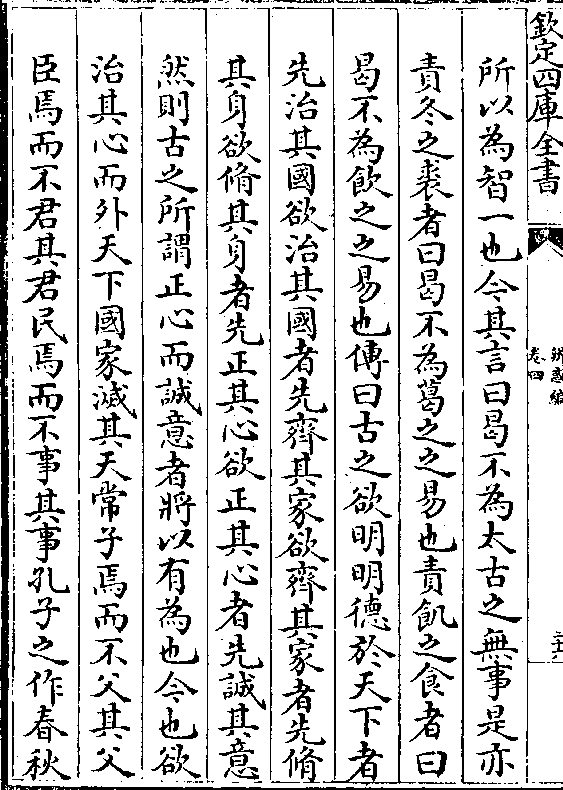 欽定四庫全書
辨惑編
卷四
二十六
所以為智一也今其言曰曷不為太古之無事是亦
責冬之裘者曰曷不為葛之之易也責飢之食者曰
曷不為飲之之易也傳曰古之欲明明德於天下者
先治其國欲治其國者先齊其家欲齊其家者先脩
其身欲脩其身者先正其心欲正其心者先誠其意
然則古之所謂正心而誠意者將以有為也今也欲
治其心而外天下國家滅其天常子焉而不父其父
臣焉而不君其君民焉而不事其事孔子之作春秋